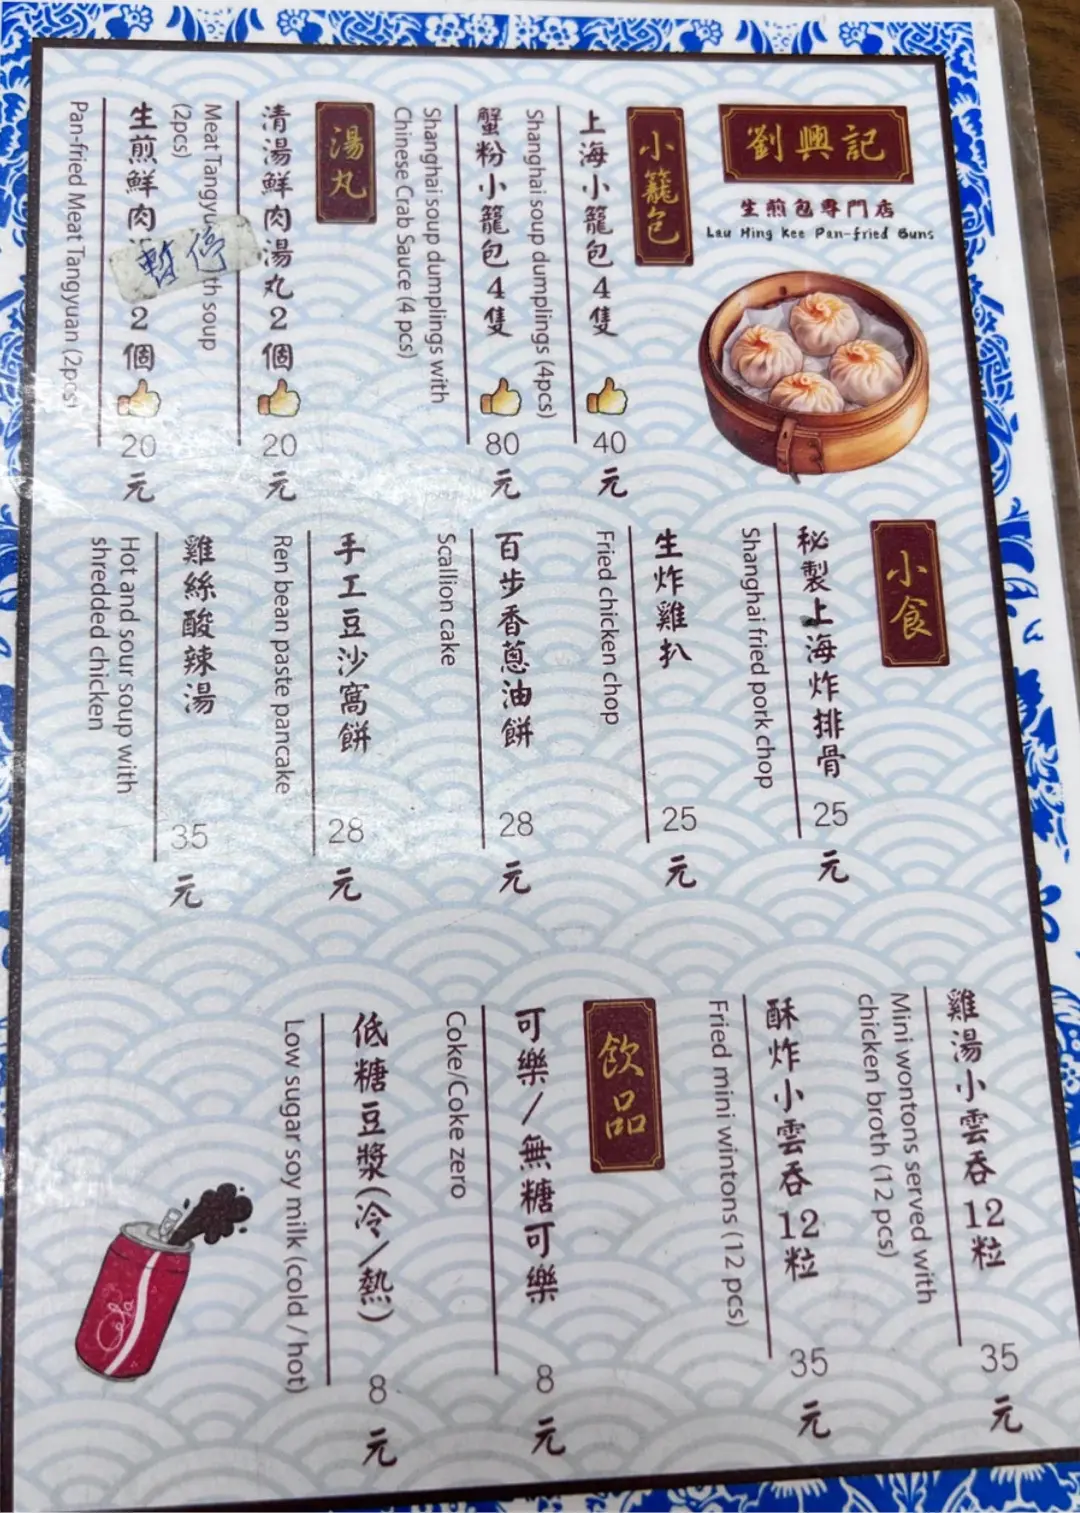 劉興記
生煎包專門店
Lau Hing Kee Pan-fried Buns
小籠包
上海小籠包4隻
40元
Shanghai soup dumplings (4pcs)
蟹粉小籠包4隻
80元
Shanghai soup dumplings with
Chinese Crab Sauce (4 pcs)
湯丸
清湯鮮肉湯丸2個
20元
Meat Tangyu th soup
(2pcs)
生煎鮮肉 2個
20元
暫停
Pan-fried Meat Tangyuan (2pcs)
小食
秘製上海炸排骨
25元
Shanghai fried pork chop
生炸雞扒
25元
Fried chicken chop
百步香蔥油餅
28元
Scallion cake
手工豆沙窩餅
28元
Ren bean paste pancake
雞絲酸辣湯
35元
Hot and sour soup with
shredded chicken
雞湯小雲吞12粒
35元
Mini wontons served with
chicken broth (12 pcs)
酥炸小雲吞12粒
35元
Fried mini wintons (12 pcs)
飲品
可樂/無糖可樂
8元
Coke/Coke zero
低糖豆漿(冷/熱)
8元
Low sugar soy milk (cold / hot)